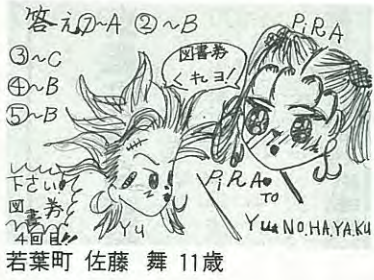 答え①~A ②~B
③~C
④~B
⑤~B
PiRA
図書券
くれヨ!
下さい
図書券
4回目!!
Yu
PiRA
TO
Yu NO.HA.YA.KU
若葉町 佐藤 舞 11歳